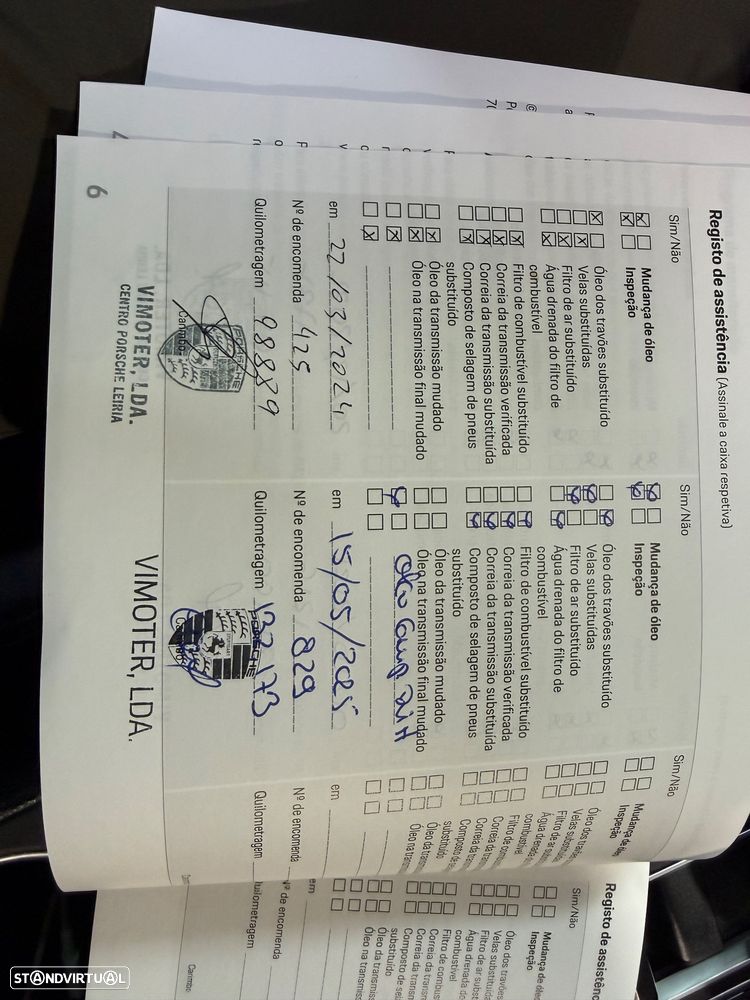 Registo de assistência (Assinale a caixa respetiva)
Sim/Não
Mudança de óleo
Inspeção
Óleo dos travões substituído
Velas substituídas
Filtro de ar substituído
Água drenada do filtro de
combustível
Filtro de combustível substituído
Correia da transmissão verificada
Correia da transmissão substituída
Composto de selagem de pneus
substituído
Óleo da transmissão mudado
Óleo na transmissão final mudado
em 22/03/2024
Nº de encomenda 425
Quilometragem 98889
PORSCHE
Carimbo
VIMOTER, LDA.
CENTRO PORSCHE LEIRIA
6
Sim/Não
Mudança de óleo
Inspeção
Óleo dos travões substituído
Velas substituídas
Filtro de ar substituído
Água drenada do filtro de
combustível
Filtro de combustível substituído
Correia da transmissão verificada
Correia da transmissão substituída
Composto de selagem de pneus
substituído
Óleo da transmissão mudado
Óleo na transmissão final mudado
em 15/05/2025
Nº de encomenda 829
Quilometragem 122173
PORSCHE
VIMOTER, LDA.
Sim/Não
Mudança de óleo
Inspeção
Óleo dos travões
Velas substituídas
Filtro de ar
Água drenada
combustível
Filtro de
Correia da
Correia da
Composto de
substituído
Óleo da
Óleo na
em
Nº de encomenda
Quilometragem
Registo de
Sim/Não
Mudança de óleo
Inspeção
Óleo dos travões
Velas
Filtro de ar
Água drenada do
combustível
Filtro de
Correia da
Correia da
Composto de
substituído
Óleo da
Óleo na
em
Nº de encomenda
Quilometragem
Carimbo
STANDVIRTUAL